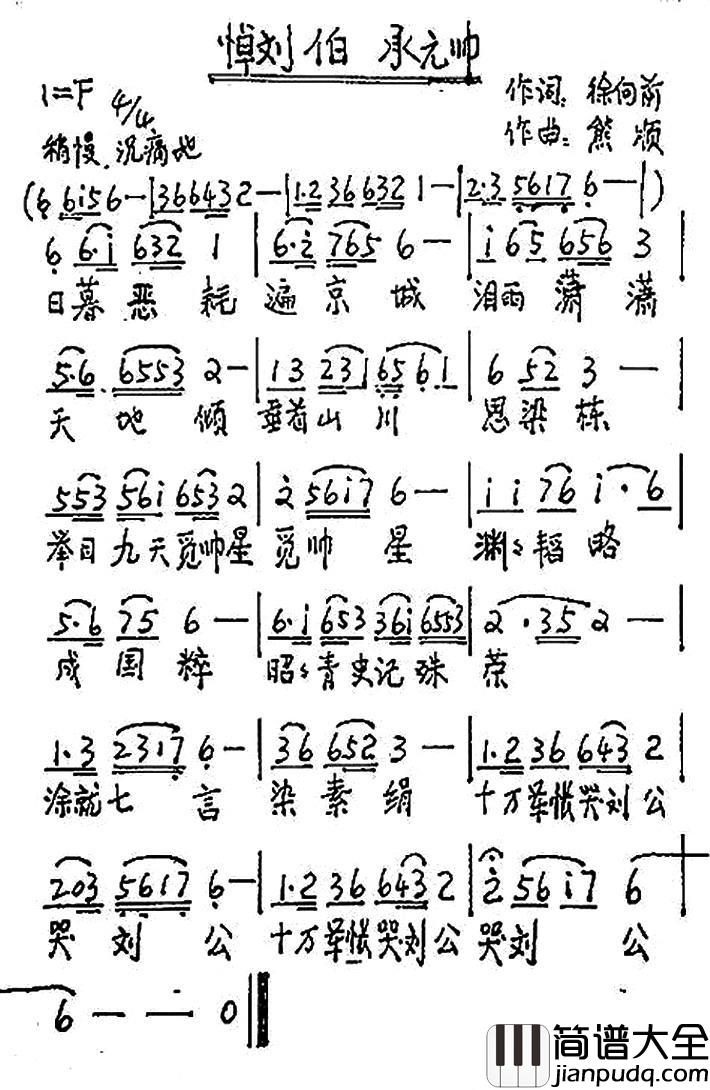 悼刘伯承元帅
1=F 4/4
作词：徐向前
稍慢.沉痛地
作曲：熊颂
(6 6i56-|366432-|1·2 36 632 1-|2·3 5617 6-|)
6 6·i 632 1|6·i 765 6-|i 65 656 3|
日暮恶耗遍京城 泪雨潇潇
5·6 6553 2-|13 231 656 1|6 52 3-|
天地倾 垂首山川 思梁栋
553 56i 653 2|2 56i7 6-|i i 76 i·6|
举目九天觅帅星觅帅星 渊渊韬略
5·6 75 6-|6·i 653 36i 6553|2·35 2-|
成国粹 昭昭青史记殊荣
1·3 2317 6-|36 652 3-|1·2 36 643 2|
涂就七言 染素绢 十万军帐哭刘公
203 5617 6-|1·2 36 643 2|2 56i7 6|
哭刘公 十万军帐哭刘公 哭刘公
6--0
简谱大全
www.jianpudq.com